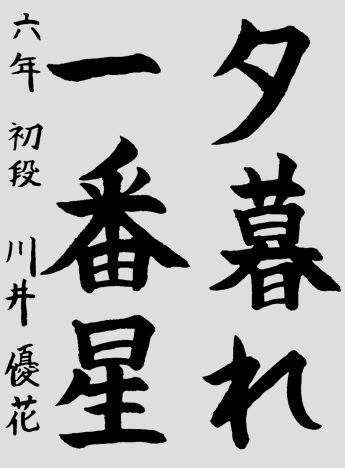 夕暮れ
一番星
六年 初段 川井優花